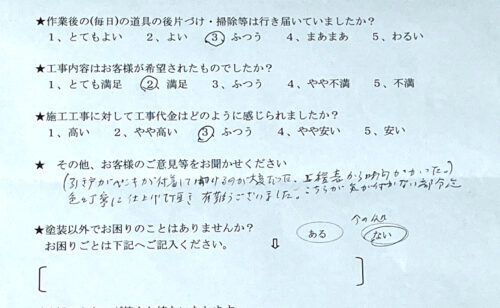 ★作業後の(毎日)の道具の後片づけ・掃除等は行き届いていましたか？
1、とてもよい　2、よい　③ふつう　4、まあまあ　5、わるい
★工事内容はお客様が希望されたものでしたか？
1、とても満足　②満足　3、ふつう　4、やや不満　5、不満
★施工工事に対して工事代金はどのように感じられましたか？
1、高い　2、やや高い　③ふつう　4、やや安い　5、安い
★　その他、お客様のご意見等をお聞かせください
(引き戸がペンキが付着して開けるのが大変だった、工程表から時間かかった。)
色々丁寧に仕上げて頂き有難うございました。こちらが気が付かない部分迄
今の処
★塗装以外でお困りのことはありませんか？　ある　ない
お困りごとは下記へご記入ください。　⇩